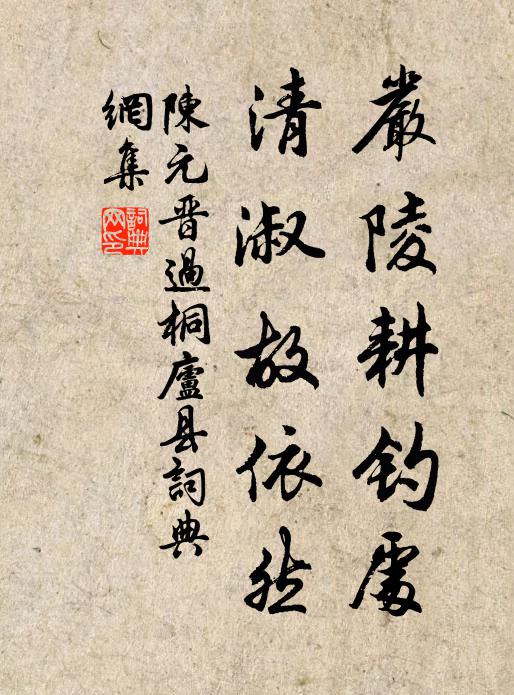 嚴陵耕釣處
清淑故依然
陳元晋過桐廬县詞典
網集
詞典
网印